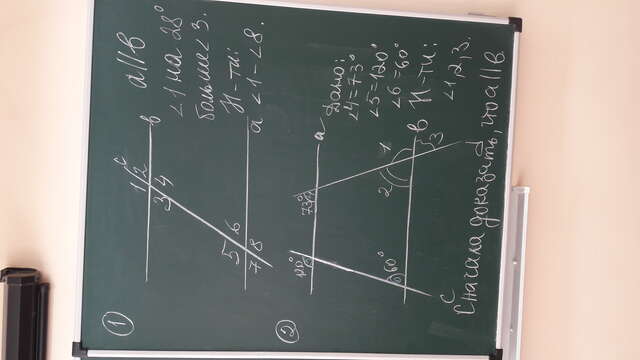 1
c
1 2
в
3 4
5 6
7 8
a
a||в
∠1 на 28°
больше ∠3.
Н-ти:
∠1-∠8.
2
120°
73°
a
60°
2 1
в
3
c
d
Дано:
∠4=73°
∠5=120°
∠6=60°
Н-ти:
∠1,2,3.
Сначала доказать, что a||в.